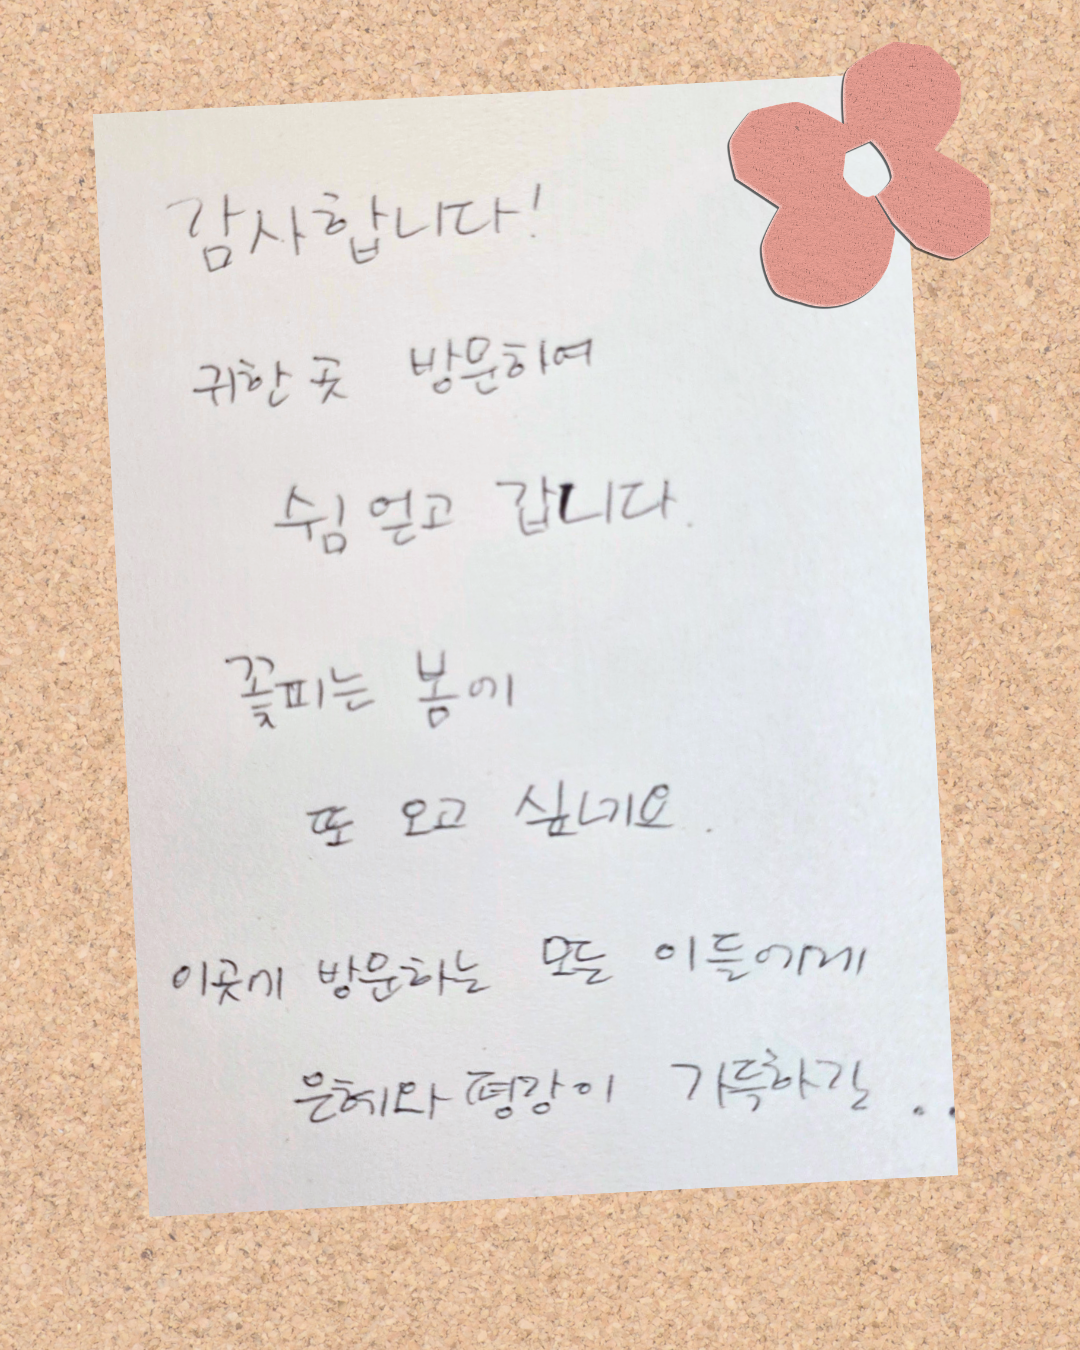 감사합니다!
귀한 곳 방문하여
쉼 얻고 갑니다.
꽃피는 봄에
또 오고 싶네요.
이곳에 방문하는 모든 이들에게
은혜와 평강이 가득하길..